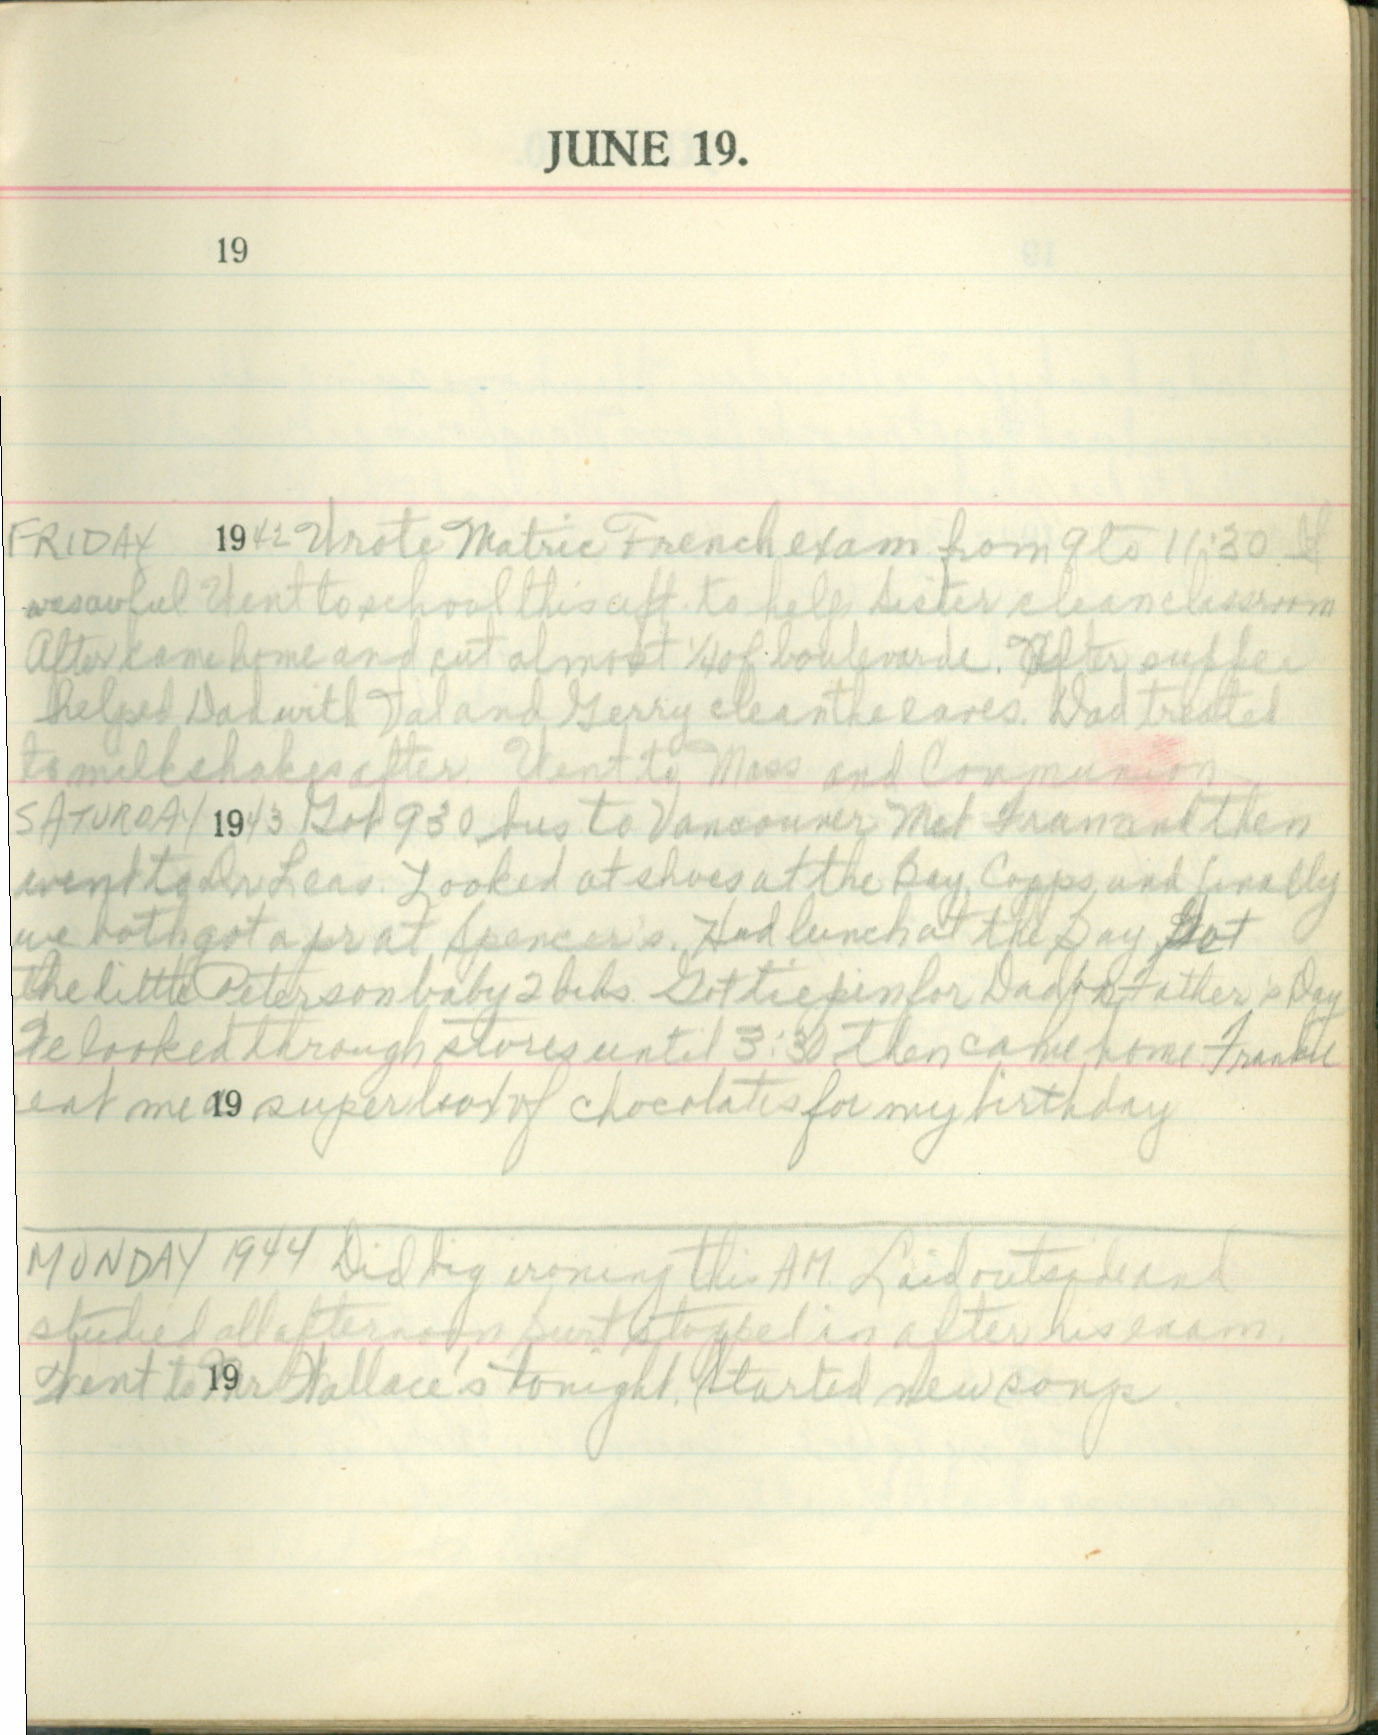 JUNE 19.
19
FRIDAY 1942 Wrote Matric French exam from 9 to 11:30. It
was awful Went to school this aft. to help Sister clean classroom
After came home and cut almost 1/4 of boulevarde. After supper
helped Dad with Val and Gerry clean the eaves. Dad treated
to milkshakes after. Went to Mass and Communion
SATURDAY 1943 Got 930 bus to Vancouver Met Fran and then
went to Dr Leas. Looked at shoes at the Bay, Copps and finally
we both got a pr at Spencer's. Had lunch at the Bay Got
the little Peterson baby 2 bibs. Got tie pin for Dad for Father's Day
We looked through stores until 3:30 then came home. Frankie
ent me a 19 super box of chocolates for my birthday
MONDAY 1944 Did big ironing this AM. Laid outside and
studied all afternoon stopped in after his exam.
Went to 19 Mr Wallace's tonight. Started new songs.